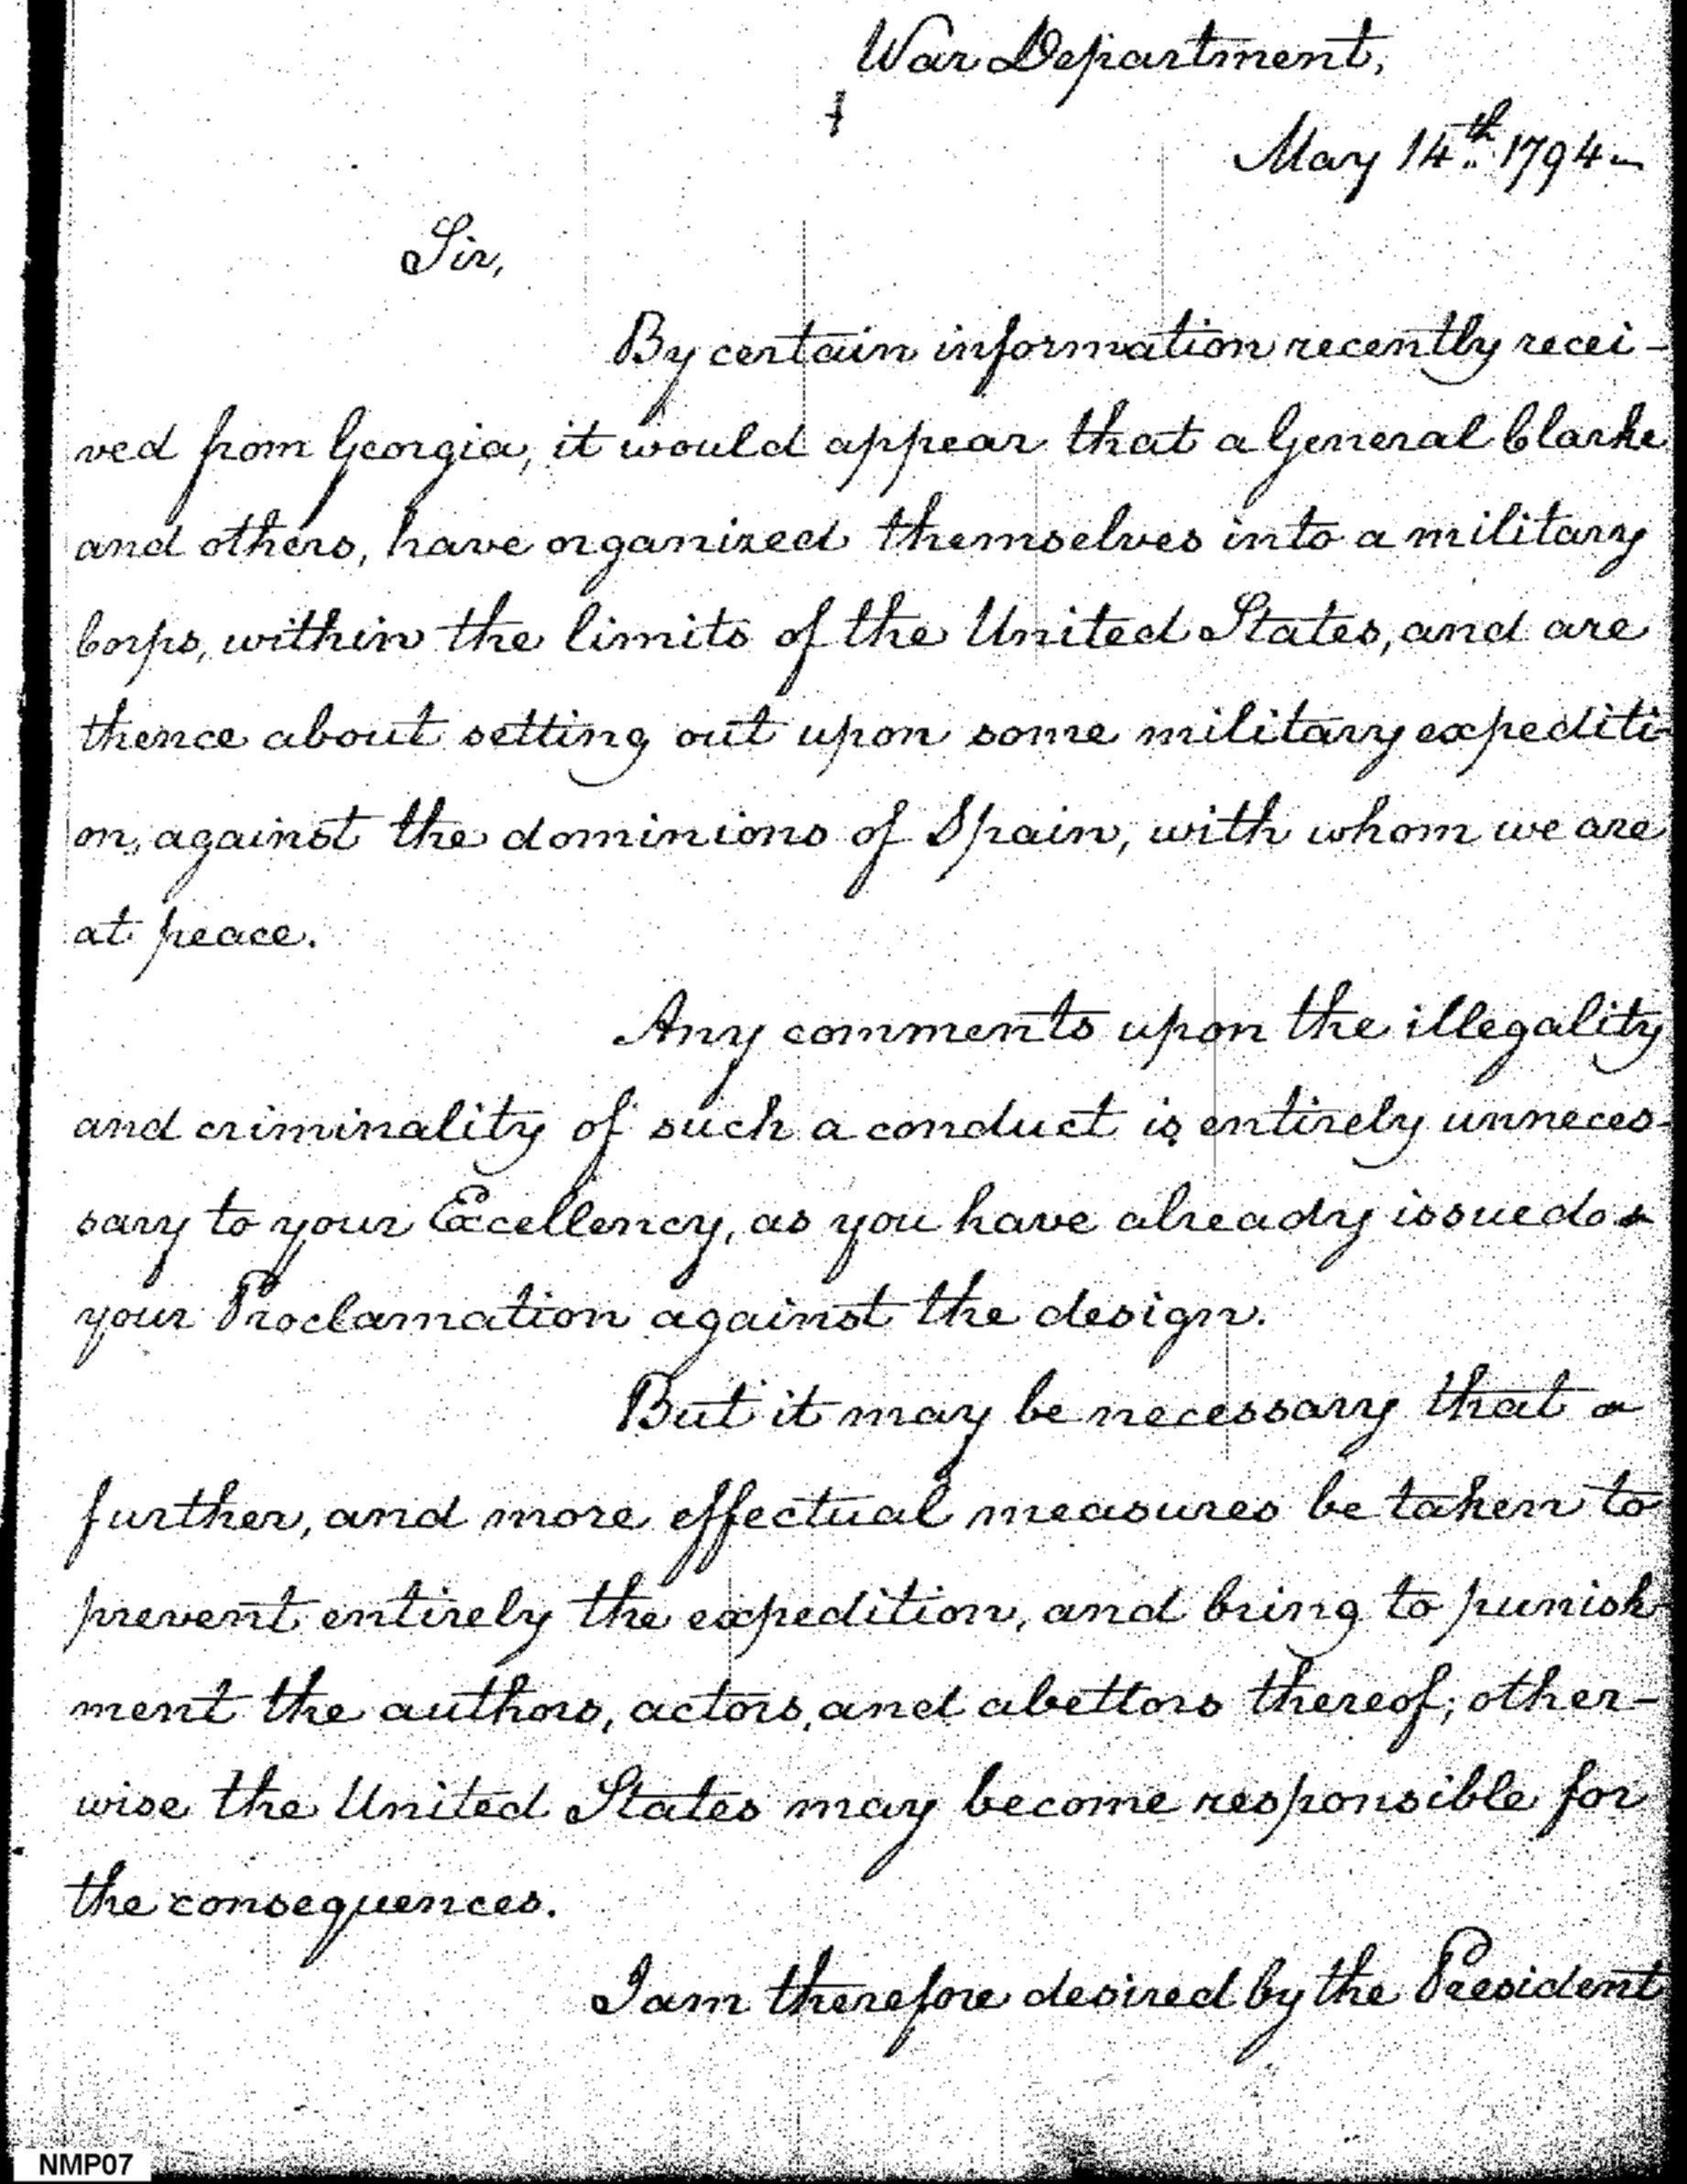 War Department,
May 14th 1794
Sir,
By certain information recently recei-
ved from Georgia, it would appear that a General Clarke
and others, have organized themselves into a military
Corps, within the limits of the United States, and are
thence about setting out upon some military expediti-
on, against the dominions of Spain, with whom we are
at peace.
Any comments upon the illegality
and criminality of such a conduct is entirely unneces-
sary to your Excellency, as you have already issued
your Proclamation against the design.
But it may be necessary that a
further, and more effectual measures be taken to
prevent entirely the expedition, and bring to punish-
ment the authors, actors, and abettors thereof; other-
wise the United States may become responsible for
the consequences.
I am therefore desired by the President
NMP07